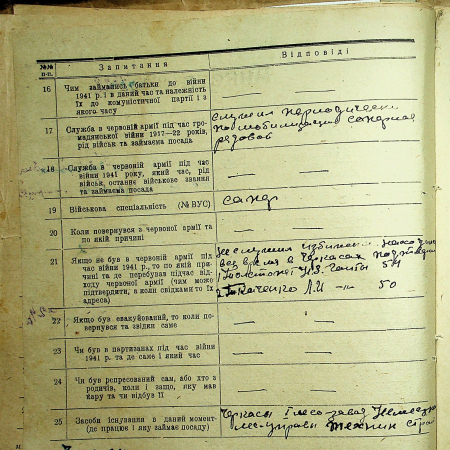 №№ п-п.
Запитання
Відповіді
16
Чим займались батьки до війни
1941 р. і в даний час та належність
їх до комуністичної партії і з
якого часу
17
Служба в червоній армії під час гро-
мадянської війни 1917—22 років,
рід військ та займаєма посада
служил периодически
по мобилизации
рядовой
18
Служба в червоній армії під час
війни 1941 року, який час, рід
військ, останнє військове звання
та займаєма посада
19
Військова спеціальність (№ ВУС)
20
Коли повернувся з червоної армії та
по якій причині
21
Якщо не був в червоній армії під
час війни 1941 р., то по якій при-
чині та де перебував підчас від-
ходу червоної армії (чим може
підтвердити, а коли свідками то їх
адреса)
не служил
в Черкасах
54
2 Ткаченко Л.И — 50
22
Якщо був евакуйований, то коли по-
вернувся та звідки саме
23
Чи був в партизанах під час війни
1941 р. та де саме і який час
24
Чи був репресований сам, або хто з
родичів, коли і защо, яку мав
кару та чи відбув її
25
Засоби існування в даний момент
(де працює і яку займає посаду)
Черкасы Лесозавод
техник